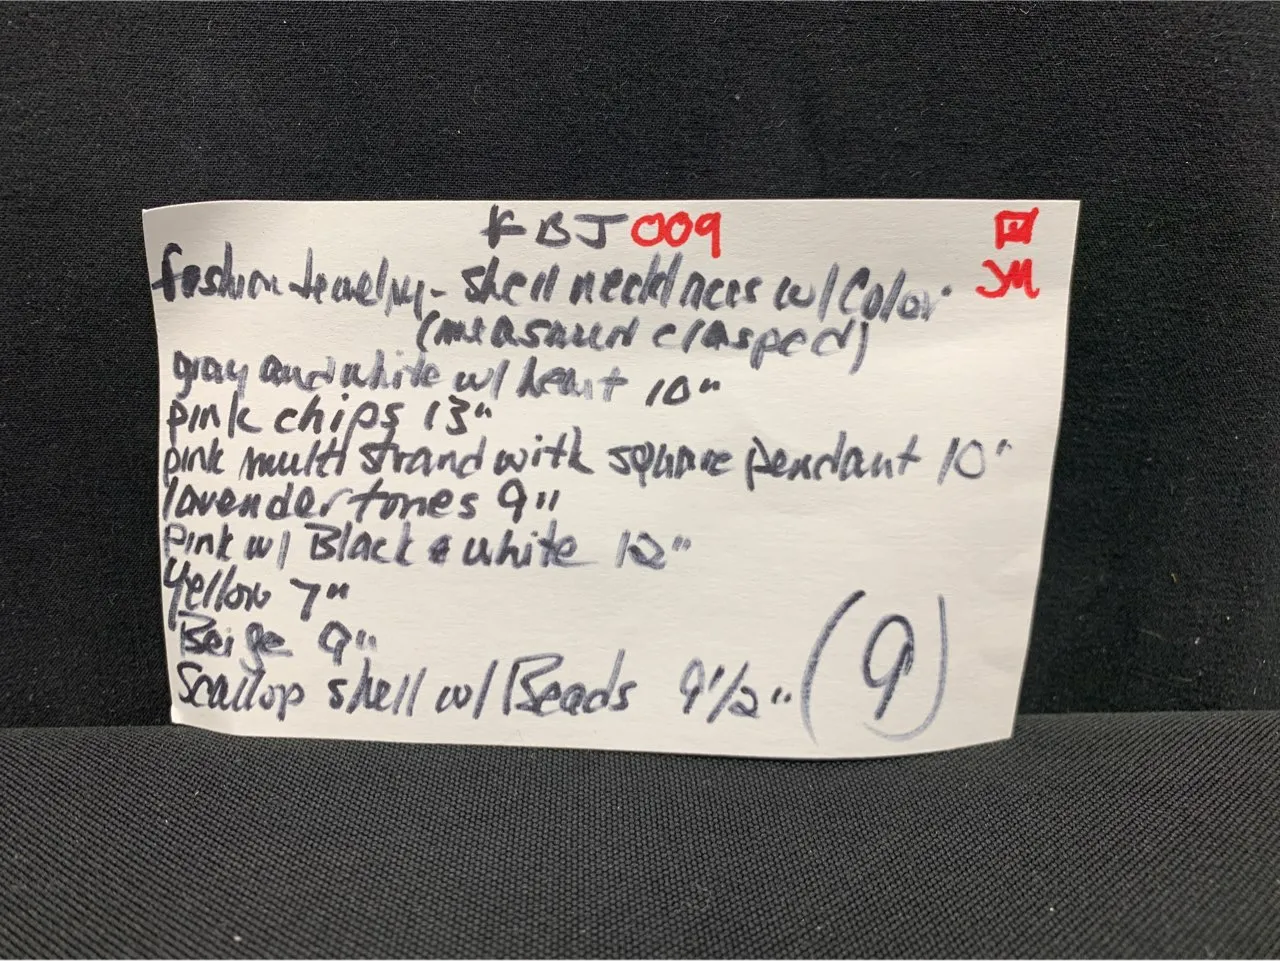 KBJ 009
JM
fashion Jewelry - shell necklaces w/ Color
(measured clasped)
gray and white w/ heart 10"
pink chips 13"
pink multi strand with square pendant 10"
lavender tones 9"
Pink w/ Black & white 12"
Yellow 7"
Beige 9"
Scallop shell w/ Beads 9 1/2" (9)